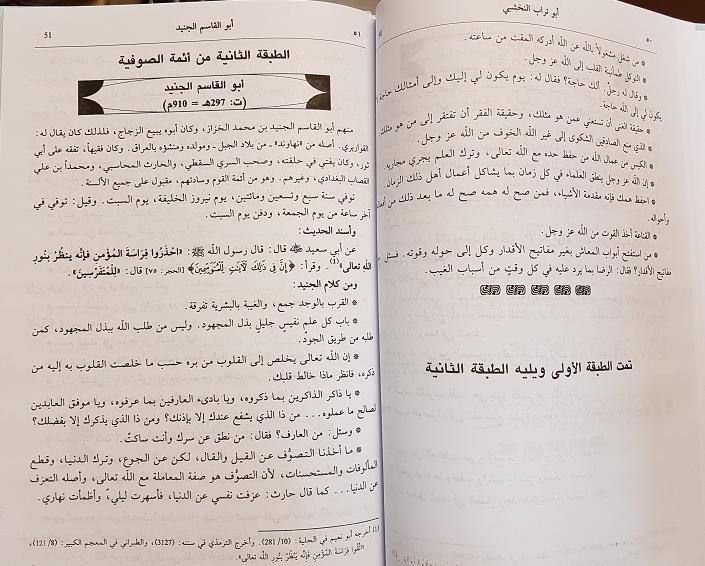 أبو تراب النخشبي
٥٠
* من شغل مشغولاً بالله عن الله أدركه المقت من ساعته.
* التوكل طمأنينة القلب إلى الله عز وجل.
* وقال له رجل: ألك حاجة؟ فقال له: يوم يكون لي إليك وإلى أمثالك حاجة
يكون لي إلى الله حاجة.
* حقيقة الغنى أن تستغني عمن هو مثلك، وحقيقة الفقر أن تفتقر إلى من هو مثلك
* الذي منع الصادقين الشكوى إلى غير الله الخوف من الله عز وجل.
* الكيس من عمال الله من حفظ حده مع الله تعالى، وترك العلم يجري مجاريه.
* إن الله عز وجل ينطق العلماء في كل زمان بما يشاكل أعمال أهل ذلك الزمان
* احفظ همك فإنه مقدمة الأشياء، فمن صح له همه صح له ما بعد ذلك من أفعاله
وأحواله.
* القناعة أخذ القوت من الله عز وجل.
* من استفتح أبواب المعاش بغير مفاتيح الأقدار وكل إلى حوله وقوته. فسئل
مفاتيح الأقدار؟ فقال: الرضا بما يرد عليه في كل وقتٍ من أسباب الغيب.
تمت الطبقة الأولى ويليه الطبقة الثانية
أبو القاسم الجنيد
٥١
51
الطبقة الثانية من أئمة الصوفية
أبو القاسم الجنيد
(ت: 297هـ = 910م)
منهم أبو القاسم الجنيد بن محمد الخزاز، وكان أبوه يبيع الزجاج، فلذلك كان يقال له:
القواريري. أصله من «نهاوند» - من بلاد الجبل - ومولده ومنشؤه بالعراق. وكان فقيهاً، تفقه على أبي
ثور، وكان يفتي في حلقته، وصحب السري السقطي، والحارث المحاسبي، ومحمداً بن علي
القصاب البغدادي، وغيرهم. وهو من أئمة القوم وسادتهم، مقبول على جميع الألسنة.
توفي سنة سبع وتسعين ومائتين، يوم نيروز الخليفة، يوم السبت. وقيل: توفي في
آخر ساعة من يوم الجمعة، ودفن يوم السبت.
وأسند الحديث:
عن أبي سعيد ﷺ قال: قال رسول الله ﷺ: «احْذَرُوا فِرَاسَةَ الْمُؤْمِنِ فَإِنَّه يَنْظُرُ بِنُورِ
اللهِ تعالى»(1). وقرأ: ﴿إِنَّ فِي ذَلِكَ لَآيَاتٍ لِلْمُتَوَسِّمِينَ﴾ [الحجر: ٧٥] قال: «لِلْمُتَفَرِّسِينَ».
ومن كلام الجنيد:
* القرب بالوجد جمع، والغيبة بالبشرية تفرقة.
* باب كل علمٍ نفيسٍ جليلٍ بذل المجهود. وليس من طلب الله ببذل المجهود، كمن
طلبه من طريق الجود.
* إن الله تعالى يخلص إلى القلوب من بره حسب ما خلصت القلوب به إليه من
ذكره، فانظر ماذا خالط قلبك.
* يا ذاكر الذاكرين بما ذكروه، ويا بادىء العارفين بما عرفوه، ويا موفق العابدين
لصالح ما عملوه... من ذا الذي يشفع عندك إلا بإذنك؟ ومن ذا الذي يذكرك إلا بفضلك؟
* وسئل: من العارف؟ فقال: من نطق عن سرك وأنت ساكتٌ.
* ما أخذنا التصوُّف عن القيل والقال، لكن عن الجوع، وترك الدنيا، وقطع
المألوفات والمستحسنات، لأن التصوُّف هو صفة المعاملة مع الله تعالى، وأصله التعزف
عن الدنيا... كما قال حارث: عزفت نفسي عن الدنيا، فأسهرت ليلي، وأظمأت نهاري.
(1) أخرجه أبو نعيم في الحلية: (10/281). وأخرج الترمذي في سننه: (3127)، والطبراني في المعجم الكبير: (8/121)،
«اتَّقُوا فِرَاسَةَ الْمُؤْمِنِ فَإِنَّه يَنْظُرُ بِنُورِ اللهِ تعالى».